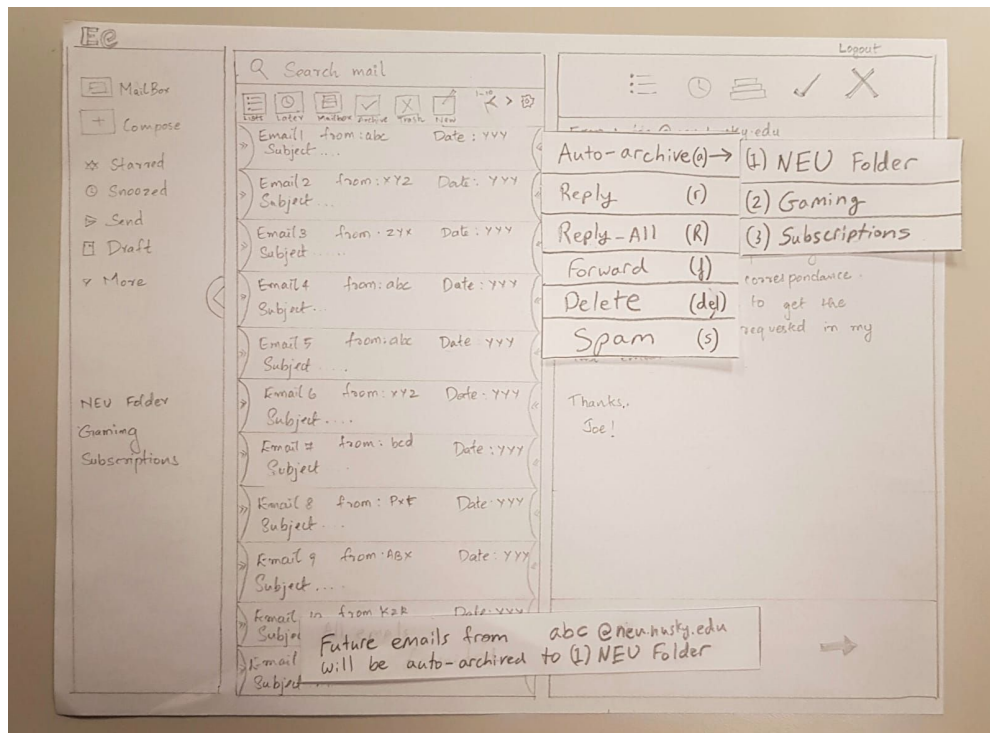 Ee
Logout
MailBox
Compose
Starred
Snoozed
Send
Draft
More
NEU Folder
Gaming
Subscriptions
Search mail
Lists Later Mailbox Archive Trash New
Email 1 from: abc Date: YYY
Subject....
Email 2 from: XYZ Date: YYY
Subject...
Email 3 from: ZYX Date: YYY
Subject....
Email 4 from: abc Date: YYY
Subject...
Email 5 from: abc Date YYY
Subject....
Email 6 from: XYZ Date: YYY
Subject....
Email 7 from: bcd Date: YYY
Subject
Email 8 from: Pxt Date: YYY
Subject...
Email 9 from: ABX Date: YYY
Subject....
Email 10 from KZK Date: YYY
Email
Subject
Auto-archive(a)→
Reply (r)
Reply-All (R)
Forward (f)
Delete (del)
Spam (s)
(1) NEU Folder
(2) Gaming
(3) Subscriptions
correspondance.
to get the
requested in my
Thanks,
Joe!
Future emails from abc@neu.husky.edu
will be auto-archived to (1) NEU Folder